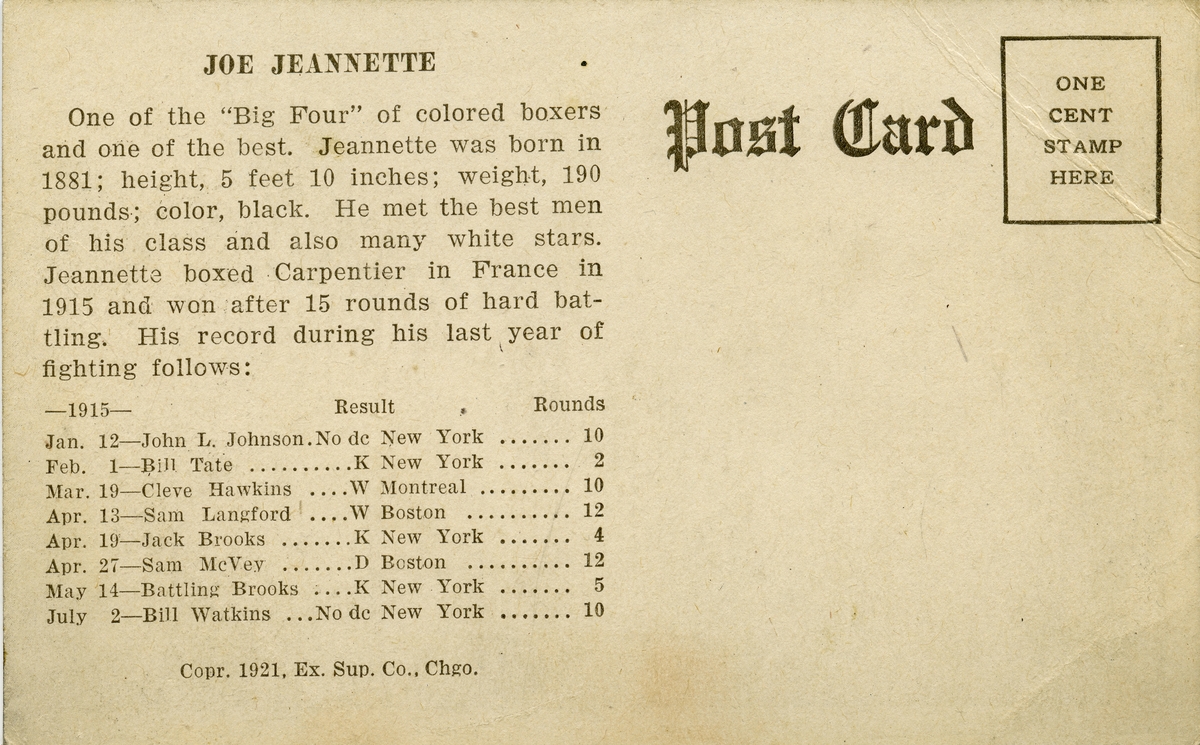 JOE JEANNETTE
One of the “Big Four” of colored boxers
and one of the best. Jeannette was born in
1881; height, 5 feet 10 inches; weight, 190
pounds; color, black. He met the best men
of his class and also many white stars.
Jeannette boxed Carpentier in France in
1915 and won after 15 rounds of hard bat-
tling. His record during his last year of
fighting follows:
—1915— Result Rounds
Jan. 12—John L. Johnson.No dc New York ....... 10
Feb. 1—Bill Tate ..........K New York ....... 2
Mar. 19—Cleve Hawkins ....W Montreal ......... 10
Apr. 13—Sam Langford ....W Boston .......... 12
Apr. 19—Jack Brooks .......K New York ....... 4
Apr. 27—Sam McVey .......D Boston .......... 12
May 14—Battling Brooks ....K New York ....... 5
July 2—Bill Watkins ...No dc New York ....... 10
Copr. 1921, Ex. Sup. Co., Chgo.
Post Card
ONE
CENT
STAMP
HERE